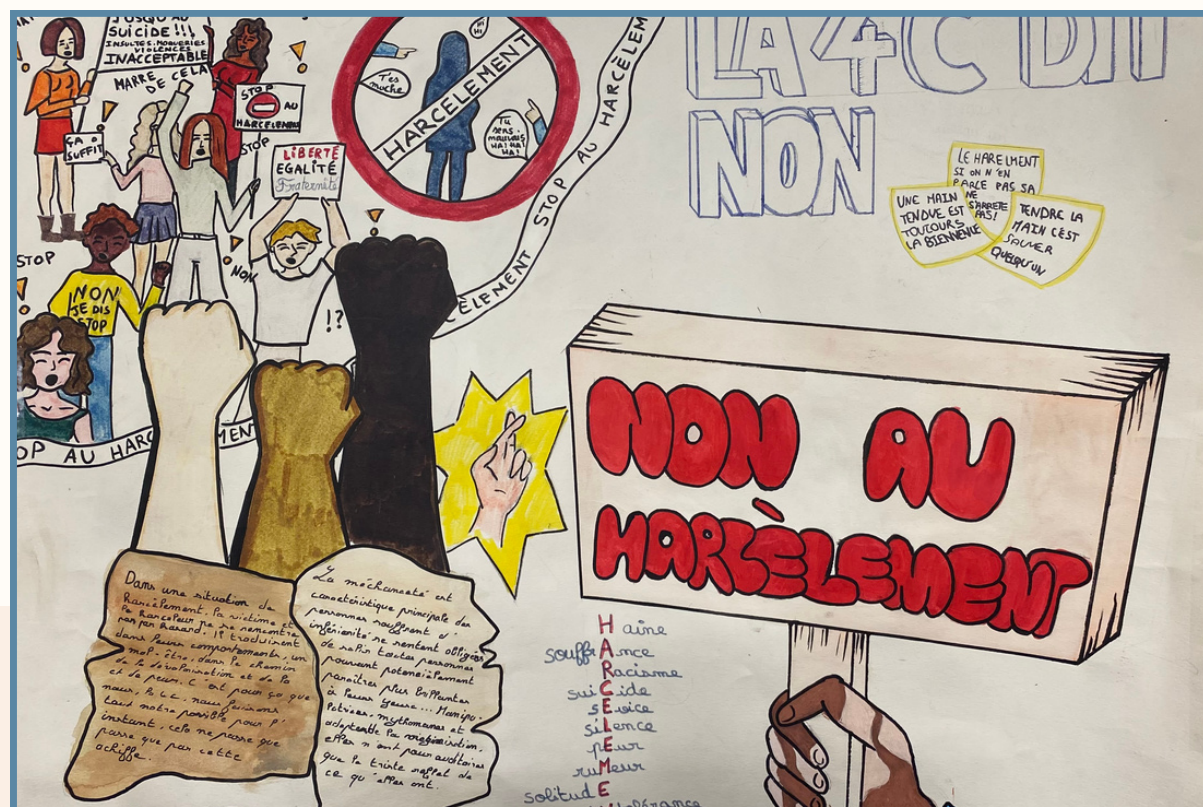 JUSQU'AU
SUICIDE!!!
INSULTES, MOQUERIES
VIOLENCES
INACCEPTABLE
MARRE DE CELA
STOP
AU
HARCELEMENT
ÇA
SUFFIT
STOP
LIBERTÉ
EGALITÉ
Fraternité
NON
STOP
NON
JE DIS
STOP
!?
HARCÈLEMENT
HI
HI
T'es
moche
Tu
sens
mauvais
HA! HA!
HA!
STOP AU HARCÈLEM
ÈLEMENT
OP AU HARC
MENT
LA 4C DIT
NON
LE HARELMENT
SI ON N'EN
PARLE PAS SA
NE
S'ARRETE
PAS!
UNE MAIN
TENDUE EST
TOUJOURS
LA BIENVENUE
TENDRE LA
MAIN C'EST
SAUVER
QUELQU'UN
NON AU
HARCÈLEMENT
Dans une situation de
harcèlement, la victime et
le harceleur ne se rencontre
pas par hasard. Il traduisent
dans leurs comportements, un
mal-être, dans le chemin
de la dévalorisation et de la
et de peur. C'est pour ça que
nous, la 4C, nous ferirons
tout notre possible pour l'
instant, cela ne passe que
passe que par cette
achiffe.
La méchanceté est
caractéristique principale des
personnes souffrent d'
infériorité se sentent obligées
de salir toutes personnes
pouvant potenciellement
paraîtres plus brillantes
à leurs yeux... Manipu-
latrices, mythomanes et
adeptent de la
elles n'ont pour auditoires
que le triste reflet de
ce qu'elles ont.
Haine
souffrAnce
Racisme
suiCide
sEvice
siLence
pEur
ruMeur
solitudE